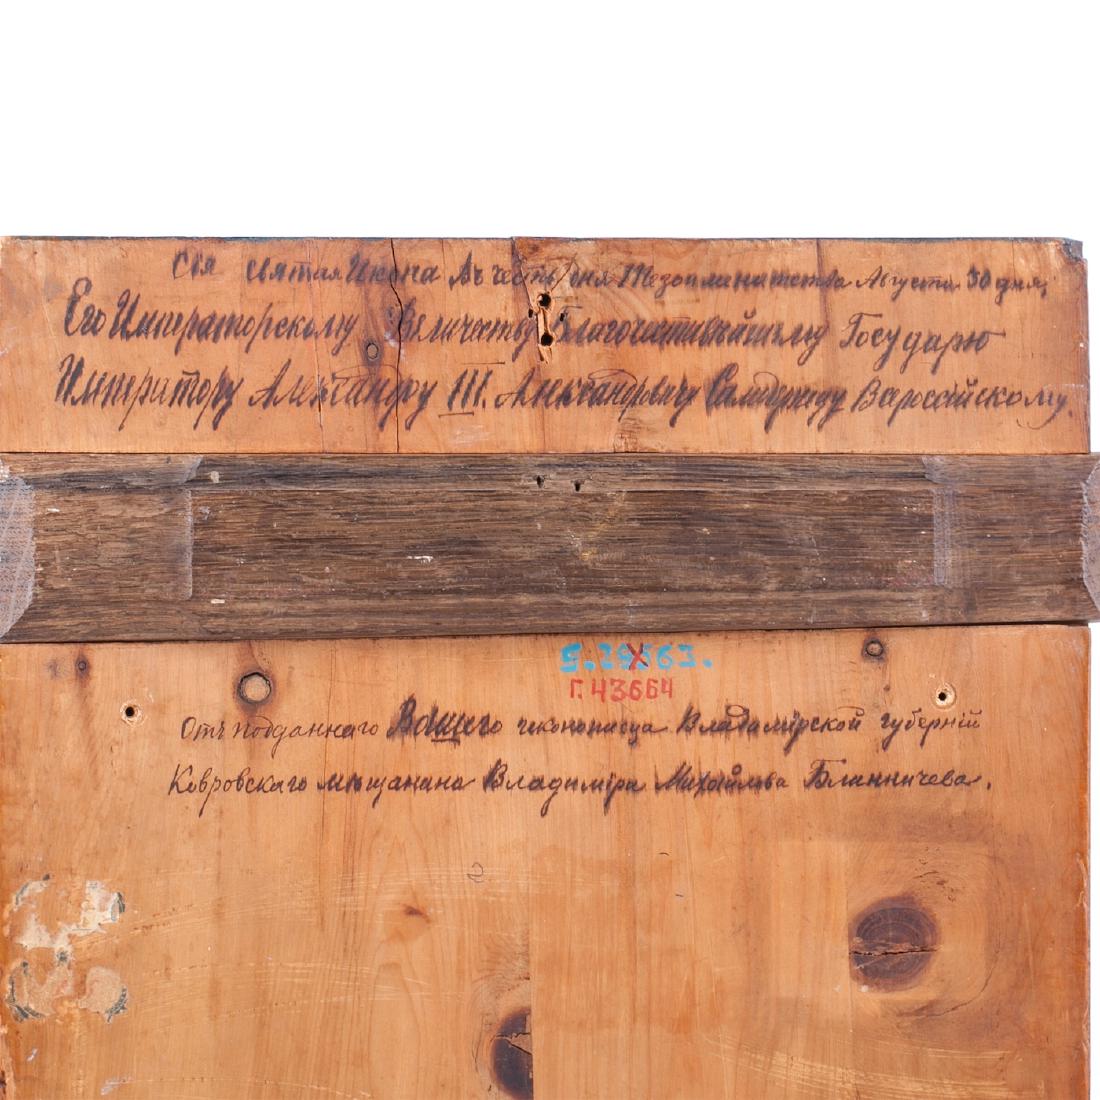 Сія святая Икона въ честь дня Тезоименитства Августа 30 дня,
Его Императорскому Величеству Благочестивѣйшему Государю
Императору Александру III. Александровичу Самодержцу Всероссійскому.
Г.43664
Отъ подданнаго Вашего иконописца Владимірской губерніи
Ковровскаго мѣщанина Владиміра Михайлова Блинничева.